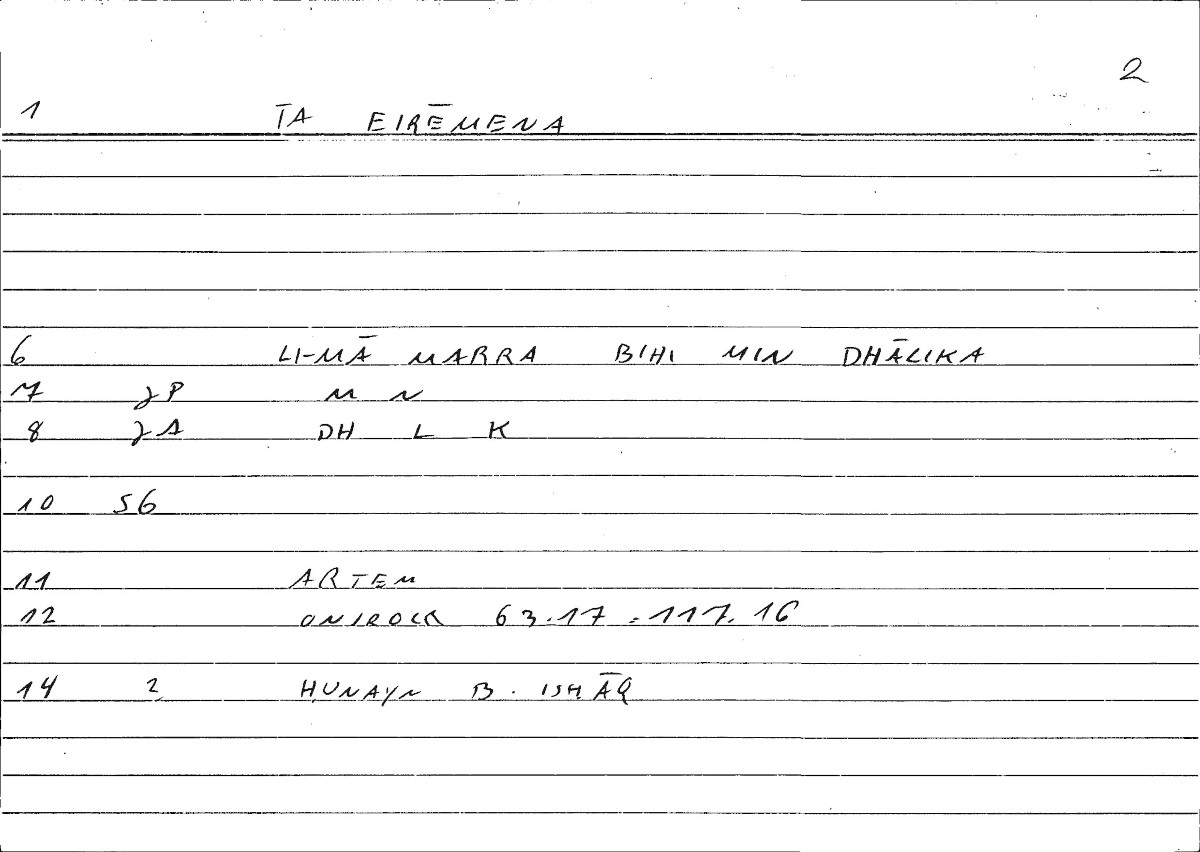 2
1 TA EIRĒMENA
6 LI-MĀ MARRA BIHI MIN DHĀLIKA
7 JP M N
8 JA DH L K
10 56
11 ARTEM
12 ONIROCR 63.17 = 117.16
14 2 ḤUNAYN B. ISḤĀQ